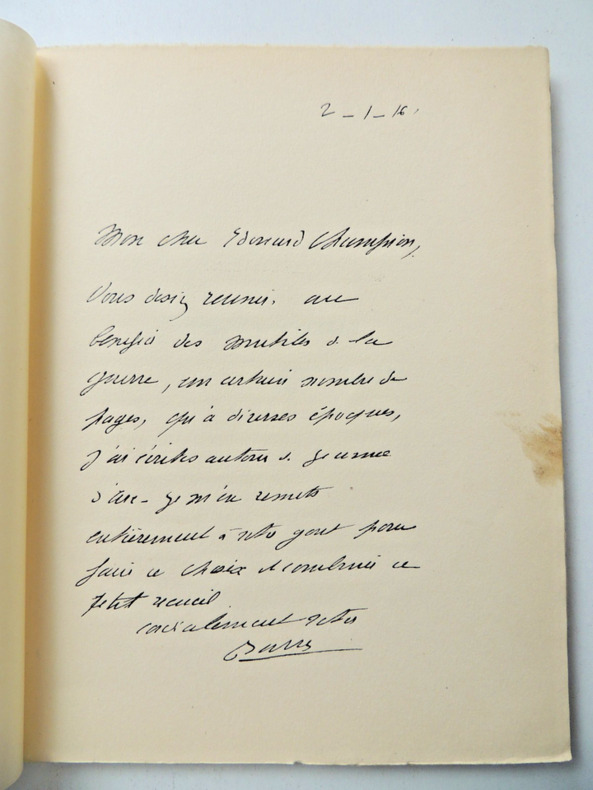 2-1-16.
Mon cher Edouard Champion,
Vous desirez reunir, au
benefice des mutilés de la
guerre, un certain nombre de
pages, qu'à diverses époques,
j'ai écrites autour de Jeanne
d'Arc - Je m'en remets
entièrement à votre gout pour
faire ce choix et combiner ce
petit recueil
cordialement votre
Barrès